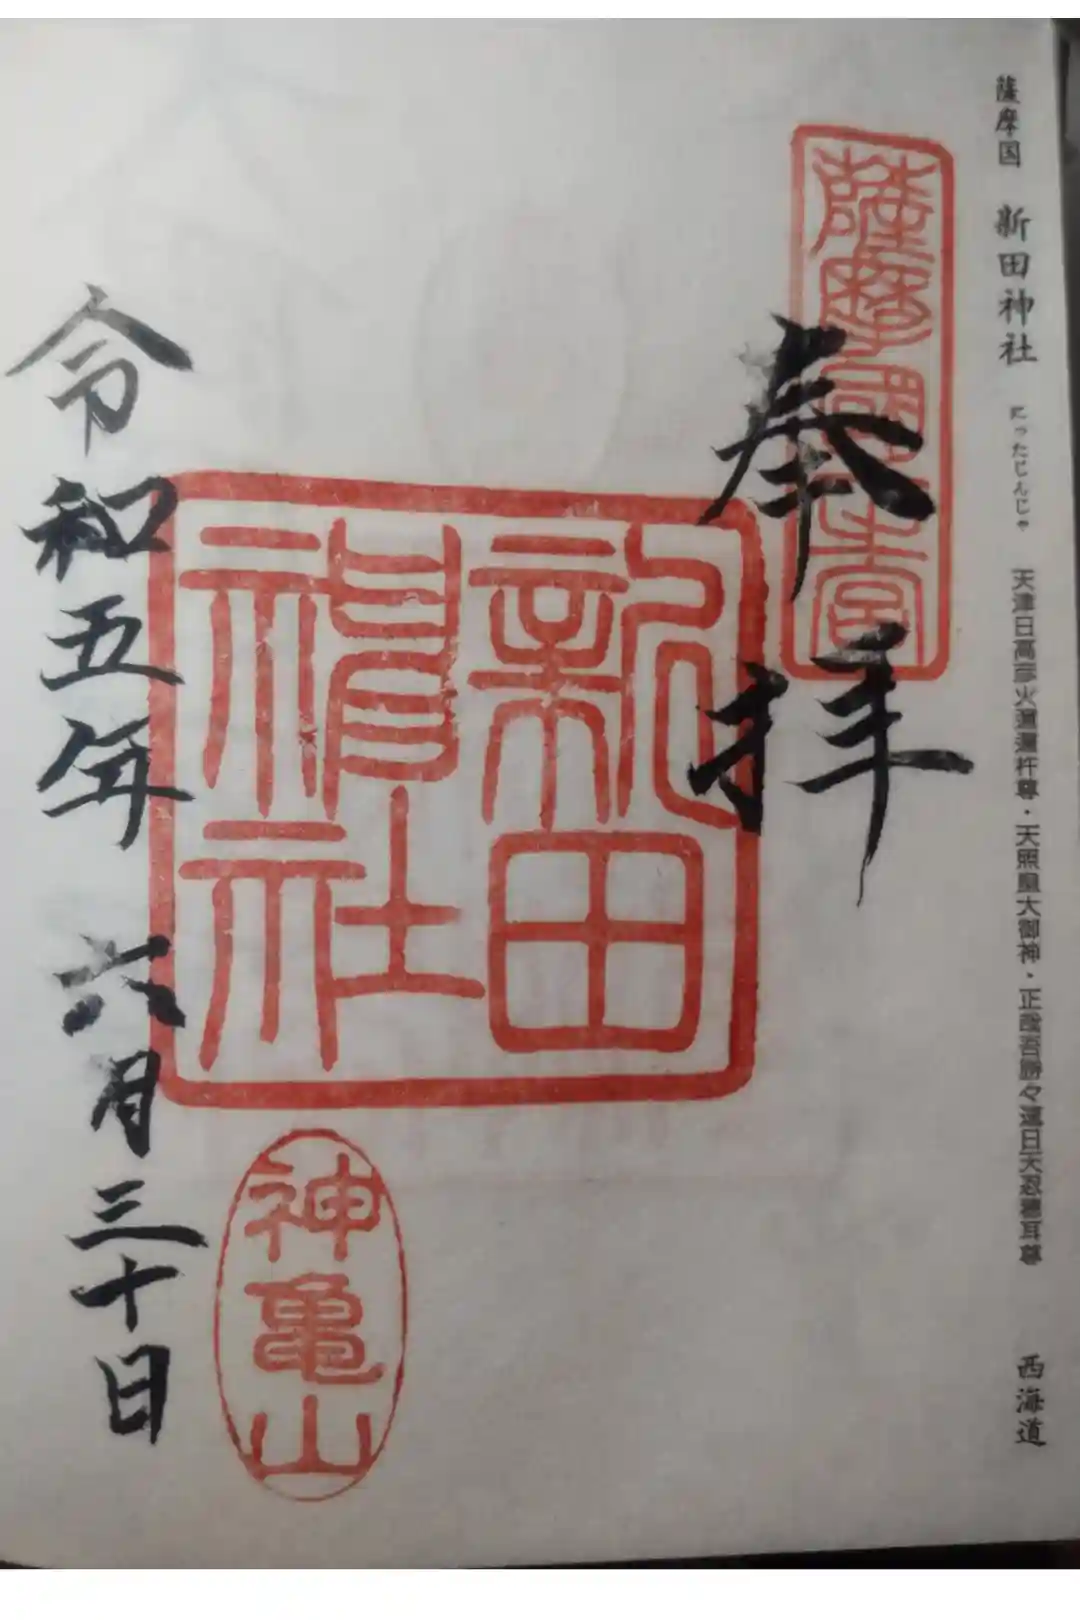 薩摩国 新田神社 にったじんじゃ 天津日高彦火邇邇杵尊・天照皇大御神・正哉吾勝々速日天忍穂耳尊 西海道
薩摩國一宮
奉拝
新田
神社
神亀山
令和五年 六月三十日